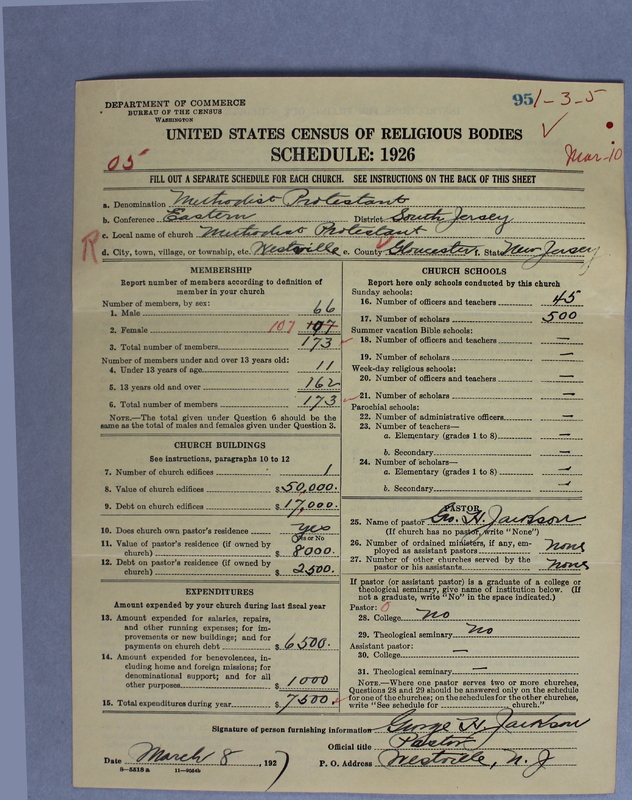 DEPARTMENT OF COMMERCE
BUREAU OF THE CENSUS
WASHINGTON
951-3-5
UNITED STATES CENSUS OF RELIGIOUS BODIES
SCHEDULE: 1926
05
Mar-10
FILL OUT A SEPARATE SCHEDULE FOR EACH CHURCH. SEE INSTRUCTIONS ON THE BACK OF THIS SHEET
a. Denomination Methodist Protestant
b. Conference Eastern District South Jersey
c. Local name of church Methodist Protestant
R
d. City, town, village, or township, etc. Westville e. County Gloucester, State New Jersey
MEMBERSHIP
Report number of members according to definition of
member in your church
Number of members, by sex:
1. Male 66
2. Female 107 107
3. Total number of members 173
Number of members under and over 13 years old:
4. Under 13 years of age 11
5. 13 years old and over 162
6. Total number of members 173
NOTE.—The total given under Question 6 should be the
same as the total of males and females given under Question 3.
CHURCH BUILDINGS
See instructions, paragraphs 10 to 12
7. Number of church edifices 1
8. Value of church edifices $50,000.
9. Debt on church edifices $17,000.
10. Does church own pastor's residence yes
Yes or No
11. Value of pastor's residence (if owned by
church) $8000.
12. Debt on pastor's residence (if owned by
church) $2500.
EXPENDITURES
Amount expended by your church during last fiscal year
13. Amount expended for salaries, repairs,
and other running expenses; for im-
provements or new buildings; and for
payments on church debt $6500.
14. Amount expended for benevolences, in-
cluding home and foreign missions; for
denominational support; and for all
other purposes $1000
15. Total expenditures during year $7500
CHURCH SCHOOLS
Report here only schools conducted by this church
Sunday schools:
16. Number of officers and teachers 45
17. Number of scholars 500
Summer vacation Bible schools:
18. Number of officers and teachers —
19. Number of scholars —
Week-day religious schools:
20. Number of officers and teachers —
21. Number of scholars —
Parochial schools:
22. Number of administrative officers —
23. Number of teachers—
a. Elementary (grades 1 to 8) —
b. Secondary —
24. Number of scholars—
a. Elementary (grades 1 to 8) —
b. Secondary —
PASTOR
25. Name of pastor Geo. H. Jackson
(If church has no pastor, write "None")
26. Number of ordained ministers, if any, em-
ployed as assistant pastors none
27. Number of other churches served by the
pastor or his assistants none
If pastor (or assistant pastor) is a graduate of a college or
theological seminary, give name of institution below. (If
not a graduate, write "No" in the space indicated.)
Pastor: 0
28. College no
29. Theological seminary no
Assistant pastor:
30. College —
31. Theological seminary —
NOTE.—Where one pastor serves two or more churches,
Questions 28 and 29 should be answered only on the schedule
for one of the churches; on the schedules for the other churches,
write "See schedule for church.")
Signature of person furnishing information George H. Jackson
Official title Pastor
Date March 8, 1927
P. O. Address Westville, N. J
8-5518a 11-9054b